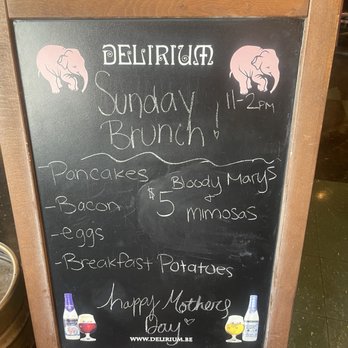 DELIRIUM
Sunday 11-2pm
Brunch!
-Pancakes
-Bacon
-eggs
-Breakfast Potatoes
$5 Bloody Mary's
+
mimosas
happy Mothers
Day
WWW.DELIRIUM.BE